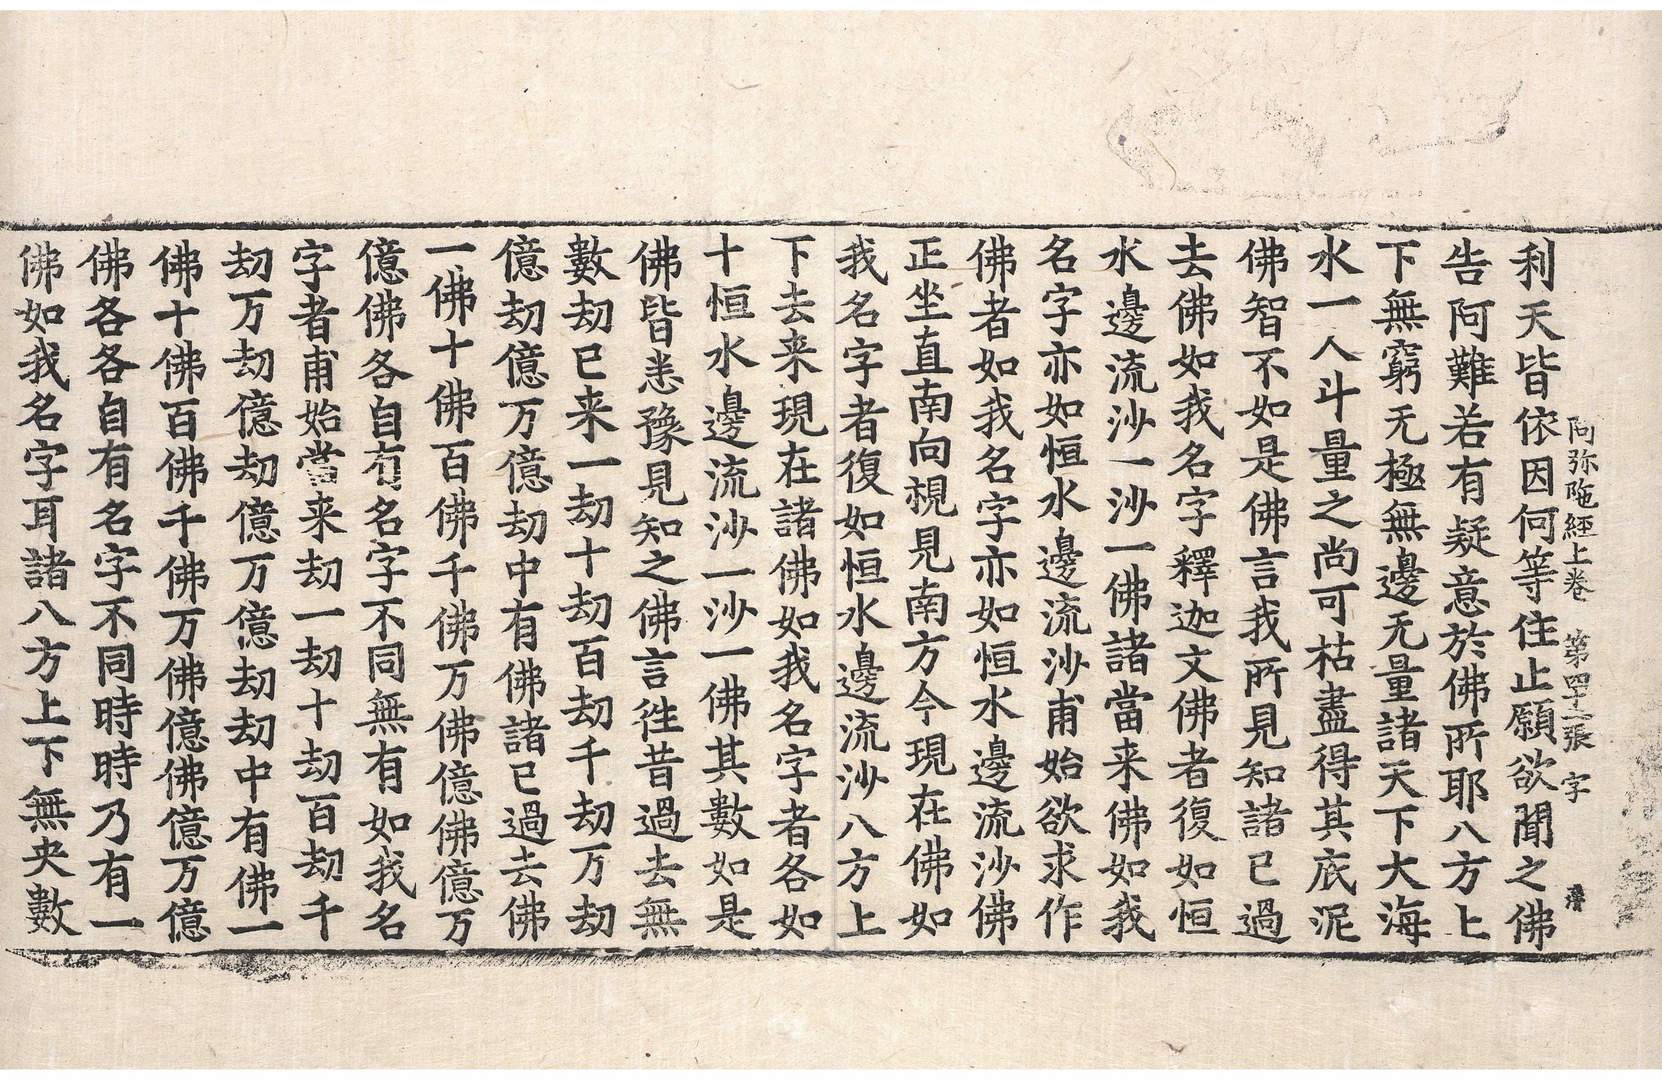 阿弥陁經上卷 第四十二張 字
利天皆依因何等住止願欲聞之佛
告阿難若有疑意於佛所耶八方上
下無窮无極無邊无量諸天下大海
水一人斗量之尚可枯盡得其底泥
佛智不如是佛言我所見知諸已過
去佛如我名字釋迦文佛者復如恒
水邊流沙一沙一佛諸當来佛如我
名字亦如恒水邊流沙甫始欲求作
佛者如我名字亦如恒水邊流沙佛
正坐直南向視見南方今現在佛如
我名字者復如恒水邊流沙八方上
下去来現在諸佛如我名字者各如
十恒水邊流沙一沙一佛其數如是
佛皆悉豫見知之佛言徃昔過去無
數劫已来一劫十劫百劫千劫万劫
億劫億万億劫中有佛諸已過去佛
一佛十佛百佛千佛万佛億佛億万
億佛各自有名字不同無有如我名
字者甫始當来劫一劫十劫百劫千
劫万劫億劫億万億劫劫中有佛一
佛十佛百佛千佛万佛億佛億万億
佛各各自有名字不同時時乃有一
佛如我名字耳諸八方上下無央數